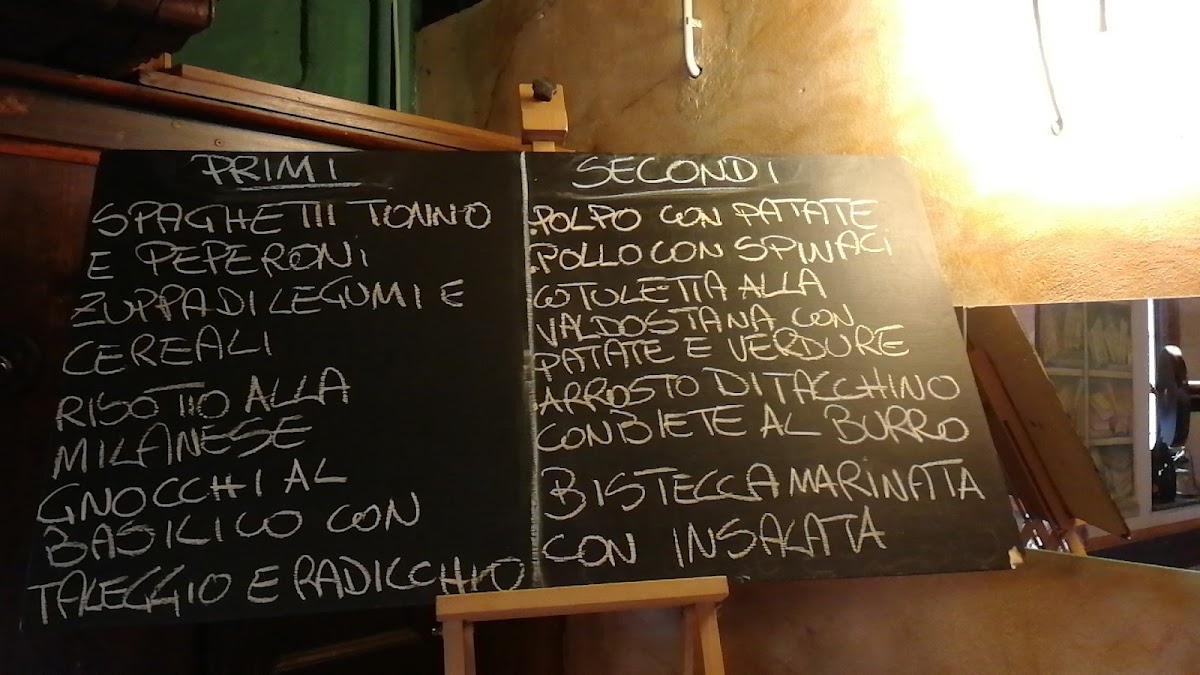 PRIMI
SPAGHETTI TONNO
E PEPERONI
ZUPPA DI LEGUMI E
CEREALI
RISOTTO ALLA
MILANESE
GNOCCHI AL
BASILICO CON
TALEGGIO E RADICCHIO
SECONDI
.POLPO CON PATATE
.POLLO CON SPINACI
COTOLETTA ALLA
VALDOSTANA CON
PATATE E VERDURE
ARROSTO DI TACCHINO
CON BIETE AL BURRO
BISTECCA MARINATA
CON INSALATA